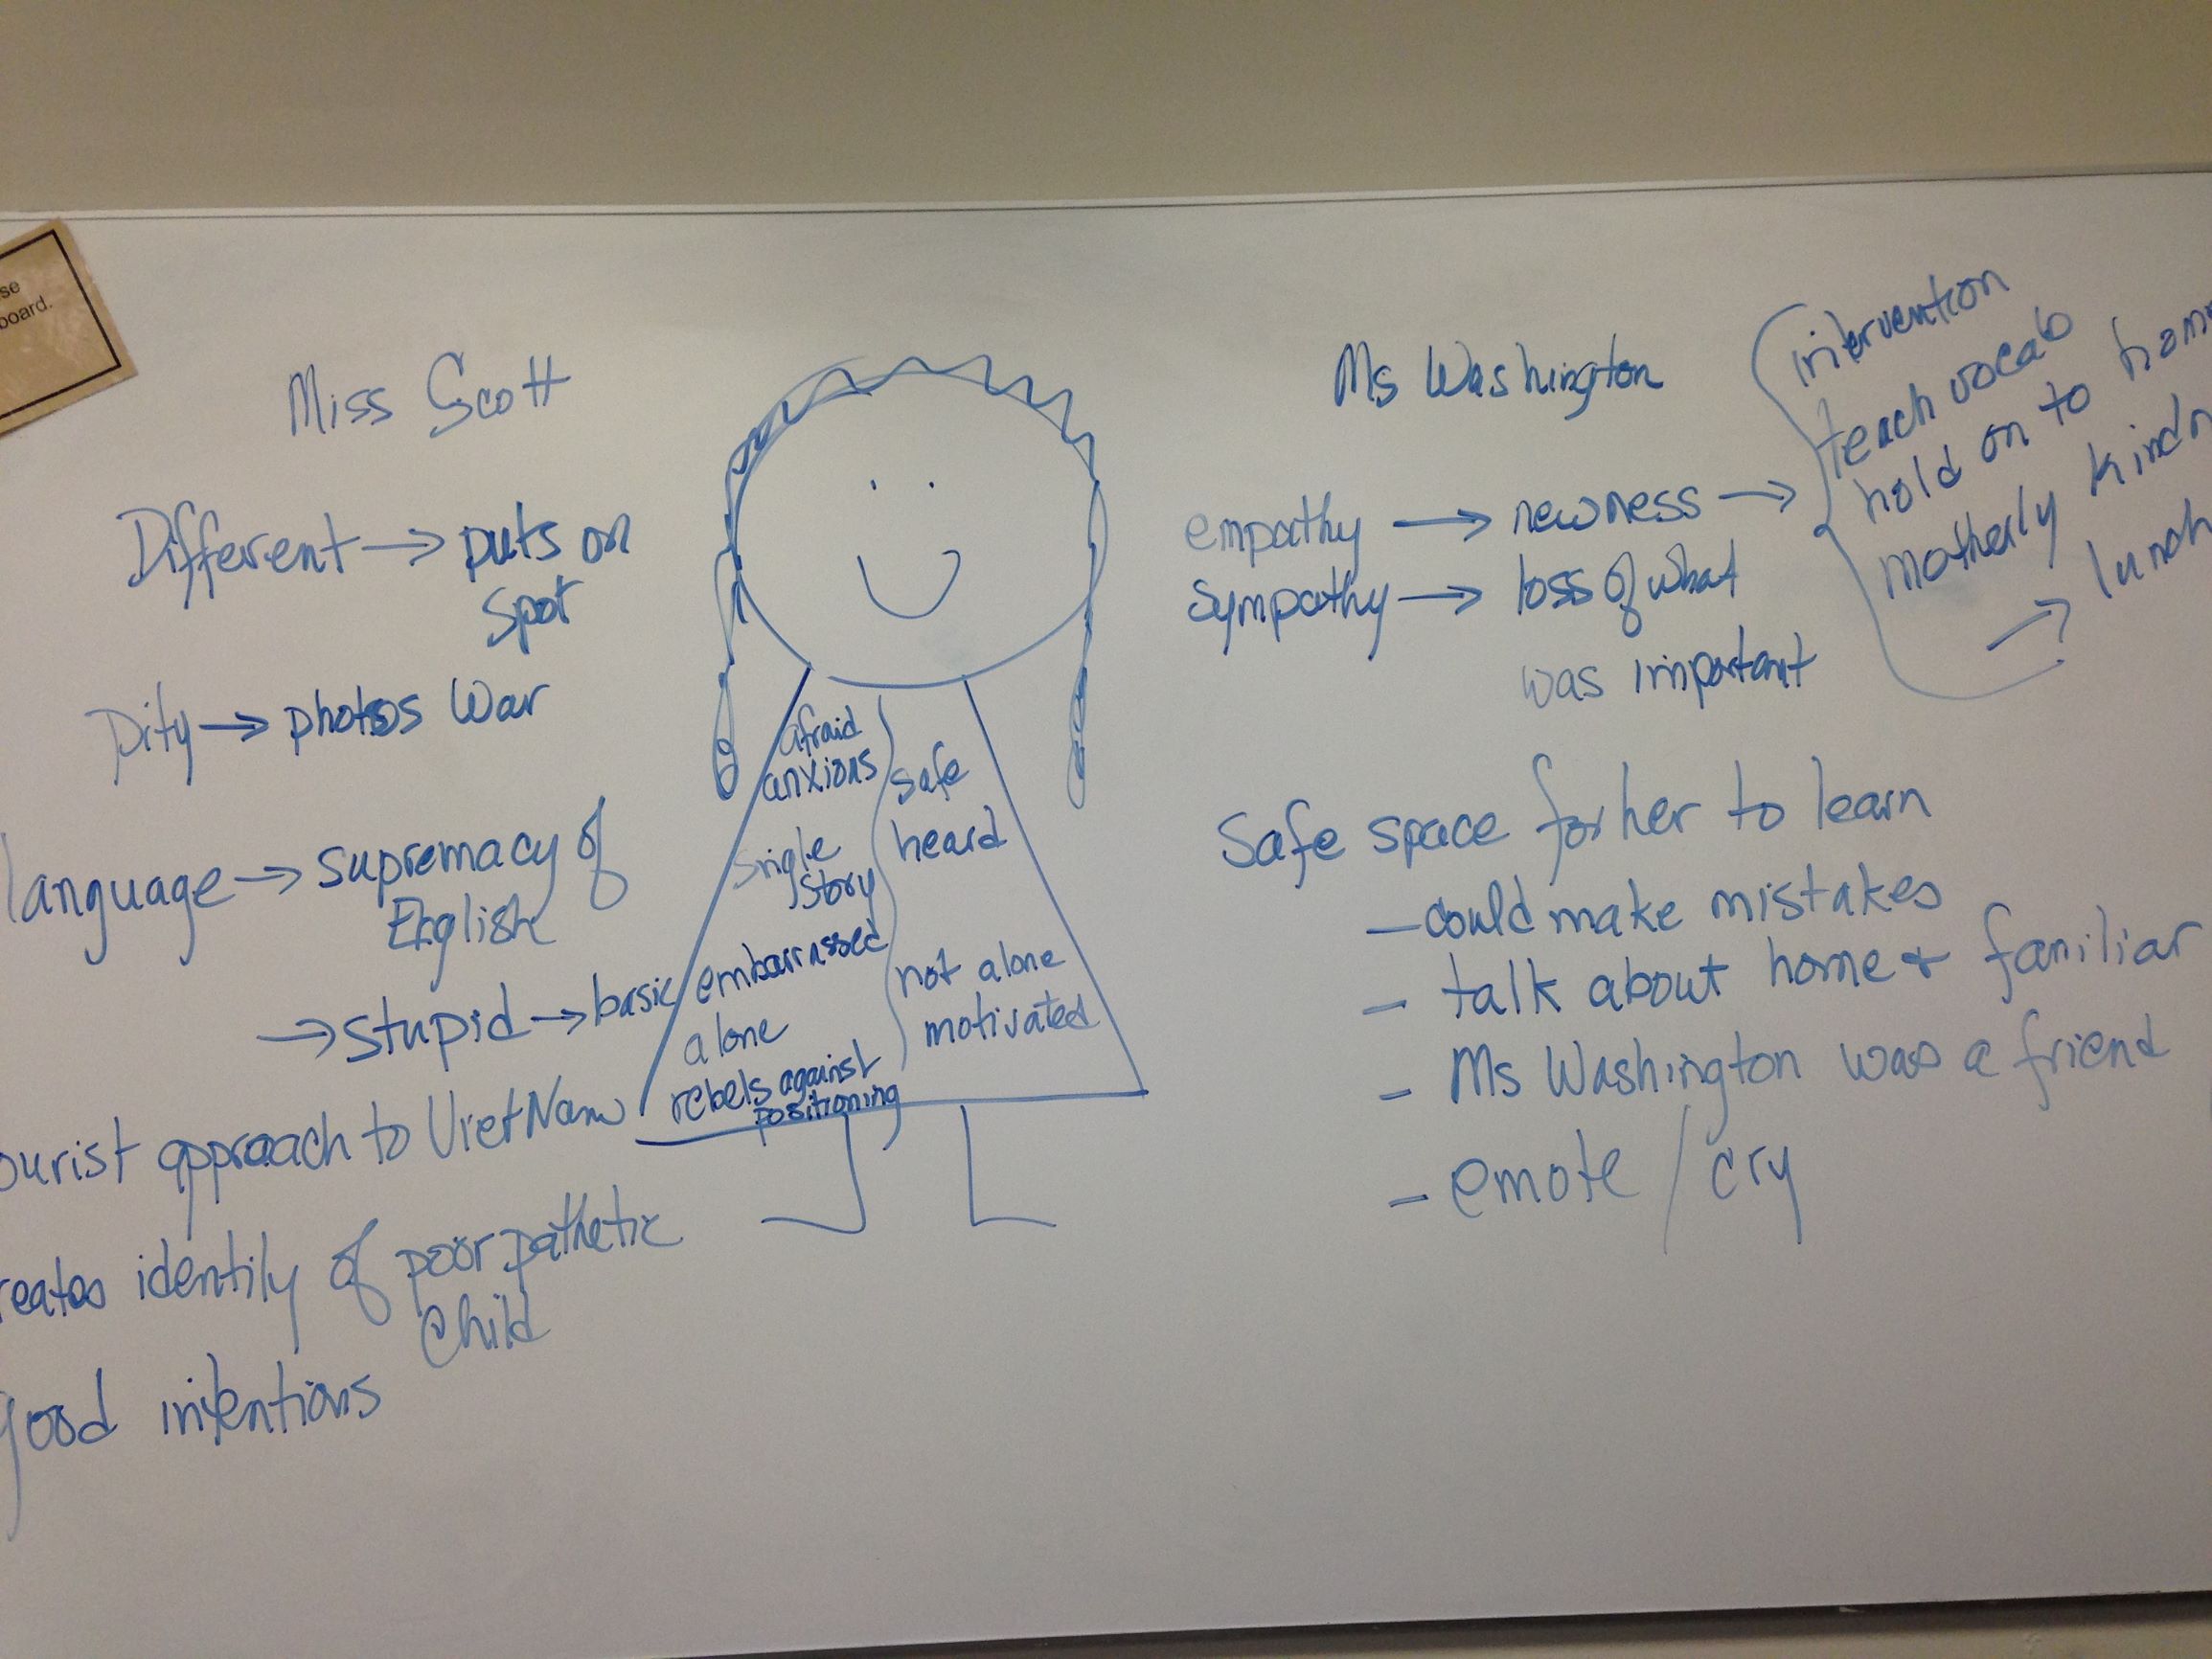 se
board.
Miss Scott
Different → puts on
spot
Pity → photos War
language → supremacy of
English
→ stupid → basic
ourist approach to VietNam
reates identity of poor pathetic
child
good intentions
afraid
anxious
single
story
embarrassed
alone
rebels against
positioning
safe
heard
not alone
motivated
Ms Washington
empathy → newness →
sympathy → loss of what
was important
intervention
teach vocab
hold on to home
motherly kindn
→ lunch
Safe space for her to learn
- could make mistakes
- talk about home + familiar
- Ms Washington was a friend
- emote / cry